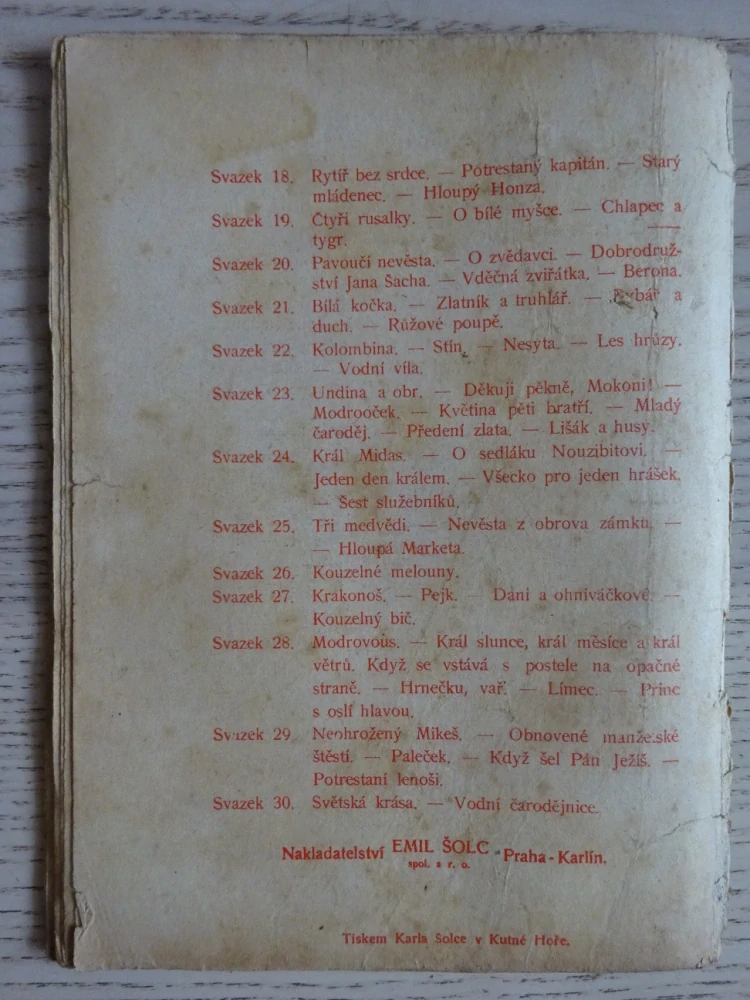 Svazek 18. Rytíř bez srdce. — Potrestaný kapitán. — Starý
mládenec. — Hloupý Honza.
Svazek 19. Čtyři rusalky. — O bílé myšce. — Chlapec a
tygr.
Svazek 20. Pavoučí nevěsta. — O zvědavci. — Dobrodruž-
ství Jana Šacha. — Vděčná zviřátka. — Berona.
Svazek 21. Bílá kočka. — Zlatník a truhlář. — Rybář a
duch. — Růžové poupě.
Svazek 22. Kolombina. — Stín. — Nesyta. — Les hrůzy.
— Vodní víla.
Svazek 23. Undina a obr. — Děkuji pěkně, Mokoni! —
Modrooček. — Květina pěti bratří. — Mladý
čaroděj. — Předení zlata. — Lišák a husy.
Svazek 24. Král Midas. — O sedláku Nouzibitovi. —
Jeden den králem. — Všecko pro jeden hrášek.
— Šest služebníků.
Svazek 25. Tři medvědi. — Nevěsta z obrova zámku. —
— Hloupá Marketa.
Svazek 26. Kouzelné melouny.
Svazek 27. Krakonoš. — Pejk. — Dani a ohniváčkové. —
Kouzelný bič.
Svazek 28. Modrovous. — Král slunce, král měsíce a král
větrů. Když se vstává s postele na opačné
straně. — Hrnečku, vař. — Límec. — Princ
s oslí hlavou.
Svazek 29. Neohrožený Mikeš. — Obnovené manželské
štěstí. — Paleček. — Když šel Pán Ježíš. —
Potrestaní lenoši.
Svazek 30. Světská krása. — Vodní čarodějnice.
Nakladatelství EMIL ŠOLC spol. s r. o. Praha-Karlín.
Tiskem Karla Šolce v Kutné Hoře.